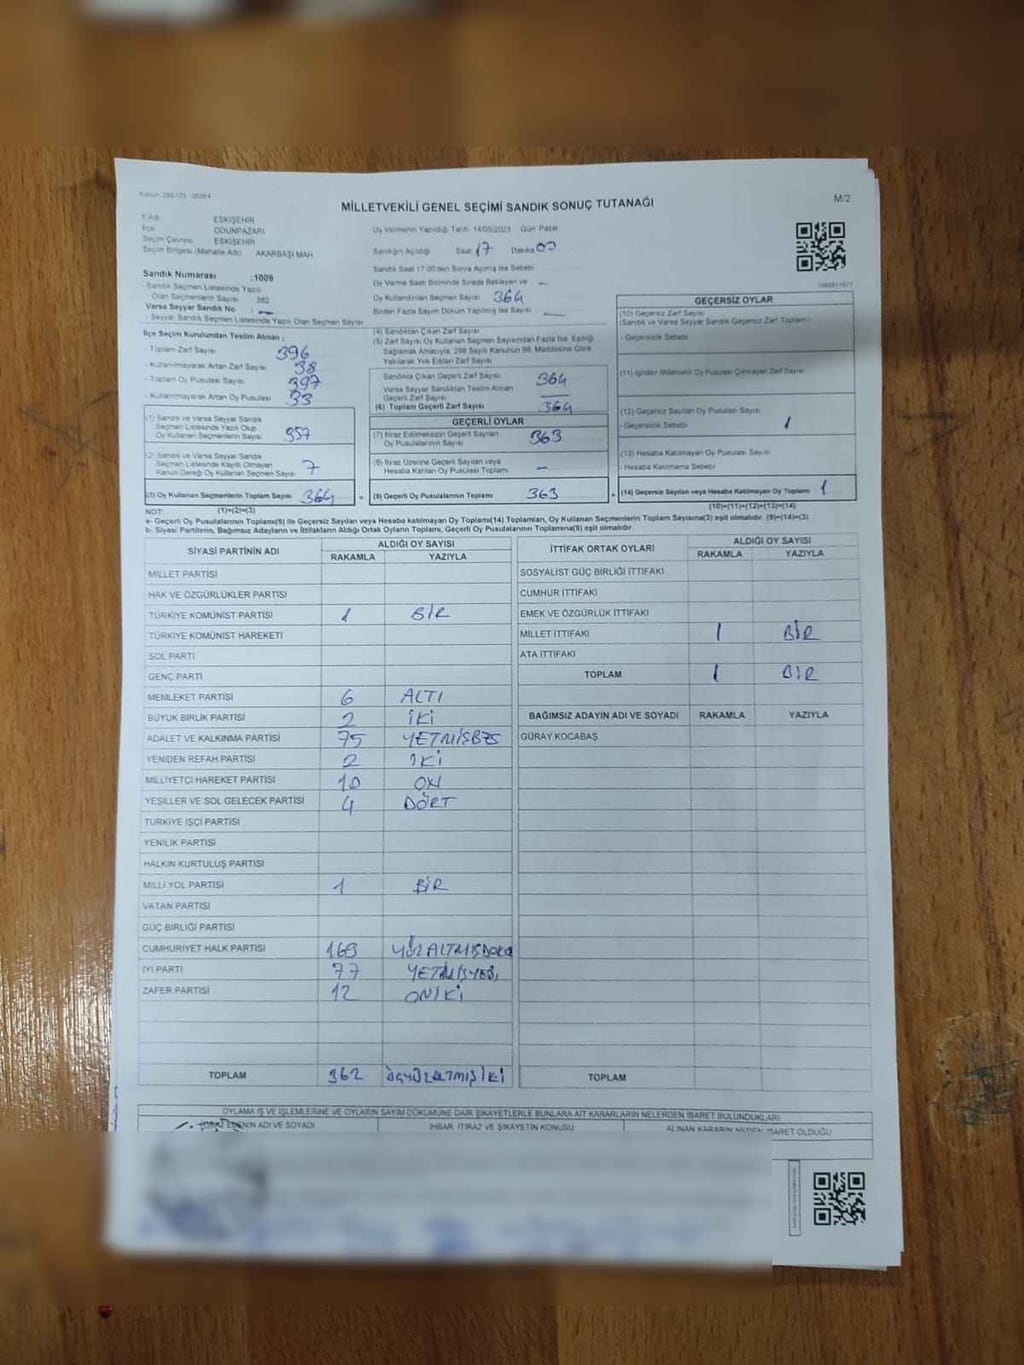 MİLLETVEKİLİ GENEL SEÇİMİ SANDIK SONUÇ TUTANAĞI
M/2
İl Adı ESKİŞEHİR
İlçe ODUNPAZARI
Seçim Çevresi ESKİŞEHİR
Seçim Bölgesi (Mahalle Adı) AKARBAŞI MAH.
Oy Vermenin Yapıldığı Tarih 14/05/2023 Gün Pazar
Sandığın Açıldığı Saat 17 Dakika 00
Sandık Numarası :1009
- Sandık Seçmen Listesinde Yazılı
Olan Seçmenlerin Sayısı 382
Varsa Seyyar Sandık No : —
- Seyyar Sandık Seçmen Listesinde Yazılı Olan Seçmen Sayısı
Sandık Saat 17.00'den Sonra Açılmış İse Sebebi
Oy Verme Saati Bitiminde Sırada Bekleyen ve —
Oy Kullandırılan Seçmen Sayısı 364
Birden Fazla Sayım Döküm Yapılmış İse Sayısı —
İlçe Seçim Kurulundan Teslim Alınan ;
- Toplam Zarf Sayısı 396
- Kullanılmayarak Artan Zarf Sayısı 38
- Toplam Oy Pusulası Sayısı 397
- Kullanılmayarak Artan Oy Pusulası 33
(1) Sandık ve Varsa Seyyar Sandık
Seçmen Listesinde Yazılı Olup
Oy Kullanan Seçmenlerin Sayısı 357
(2) Sandık ve Varsa Seyyar Sandık
Seçmen Listesinde Kayıtlı Olmayan
Kanun Gereği Oy Kullanan Seçmen Sayısı 7
(3) Oy Kullanan Seçmenlerin Toplam Sayısı 364
(4) Sandıktan Çıkan Zarf Sayısı
(5) Zarf Sayısı Oy Kullanan Seçmen Sayısından Fazla İse, Eşitliği
Sağlamak Amacıyla, 298 Sayılı Kanunun 98. Maddesine Göre
Yakılarak Yok Edilen Zarf Sayısı
Sandıkta Çıkan Geçerli Zarf Sayısı 364
Varsa Seyyar Sandıktan Teslim Alınan
Geçerli Zarf Sayısı —
(6) Toplam Geçerli Zarf Sayısı 364
GEÇERLİ OYLAR
(7) İtiraz Edilmeksizin Geçerli Sayılan
Oy Pusulalarının Sayısı 363
(8) İtiraz Üzerine Geçerli Sayılan veya
Hesaba Katılan Oy Pusulası Toplamı —
(9) Geçerli Oy Pusulalarının Toplamı 363
GEÇERSİZ OYLAR
(10) Geçersiz Zarf Sayısı
(Sandık ve Varsa Seyyar Sandık Geçersiz Zarf Toplamı)
- Geçersizlik Sebebi
(11) İçinden Milletvekili Oy Pusulası Çıkmayan Zarf Sayısı
(12) Geçersiz Sayılan Oy Pusulası Sayısı
- Geçersizlik Sebebi 1
(13) Hesaba Katılmayan Oy Pusulası Sayısı
- Hesaba Katılmama Sebebi
(14) Geçersiz Sayılan veya Hesaba Katılmayan Oy Toplamı 1
NOT: (1)+(2)=(3)
(10)+(11)+(12)+(13)=(14)
a- Geçerli Oy Pusulalarının Toplamı(9) ile Geçersiz Sayılan veya Hesaba katılmayan Oy Toplamı(14) Toplamları, Oy Kullanan Seçmenlerin Toplam Sayısına(3) eşit olmalıdır. (9)+(14)=(3)
b- Siyasi Partilerin, Bağımsız Adayların ve İttifakların Aldığı Ortak Oyların Toplamı, Geçerli Oy Pusulalarının Toplamına(9) eşit olmalıdır
SİYASİ PARTİNİN ADI ALDIĞI OY SAYISI
RAKAMLA YAZIYLA
MİLLET PARTİSİ
HAK VE ÖZGÜRLÜKLER PARTİSİ
TÜRKİYE KOMÜNİST PARTİSİ 1 BİR
TÜRKİYE KOMÜNİST HAREKETİ
SOL PARTİ
GENÇ PARTİ
MEMLEKET PARTİSİ 6 ALTI
BÜYÜK BİRLİK PARTİSİ 2 İKİ
ADALET VE KALKINMA PARTİSİ 75 YETMİSBES
YENİDEN REFAH PARTİSİ 2 İKİ
MİLLİYETÇİ HAREKET PARTİSİ 10 ON
YEŞİLLER VE SOL GELECEK PARTİSİ 4 DÖRT
TÜRKİYE İŞÇİ PARTİSİ
YENİLİK PARTİSİ
HALKIN KURTULUŞ PARTİSİ
MİLLİ YOL PARTİSİ 1 BİR
VATAN PARTİSİ
GÜÇ BİRLİĞİ PARTİSİ
CUMHURİYET HALK PARTİSİ 169 YÜZALTMIŞDOKU
İYİ PARTİ 77 YETMİŞYEDİ
ZAFER PARTİSİ 12 ONİKİ
TOPLAM 362 ÜÇYÜZALTMIŞİKİ
İTTİFAK ORTAK OYLARI ALDIĞI OY SAYISI
RAKAMLA YAZIYLA
SOSYALİST GÜÇ BİRLİĞİ İTTİFAKI
CUMHUR İTTİFAKI
EMEK VE ÖZGÜRLÜK İTTİFAKI
MİLLET İTTİFAKI 1 BİR
ATA İTTİFAKI
TOPLAM 1 BİR
BAĞIMSIZ ADAYIN ADI VE SOYADI RAKAMLA YAZIYLA
GÜRAY KOCABAŞ
TOPLAM
OYLAMA İŞ VE İŞLEMLERİNE VE OYLARIN SAYIM DÖKÜMÜNE DAİR ŞİKAYETLERLE BUNLARA AİT KARARLARIN NELERDEN İBARET BULUNDUKLARI
İTİRAZ EDENİN ADI VE SOYADI
İHBAR, İTİRAZ VE ŞİKAYETİN KONUSU
ALINAN KARARIN NEDEN İBARET OLDUĞU